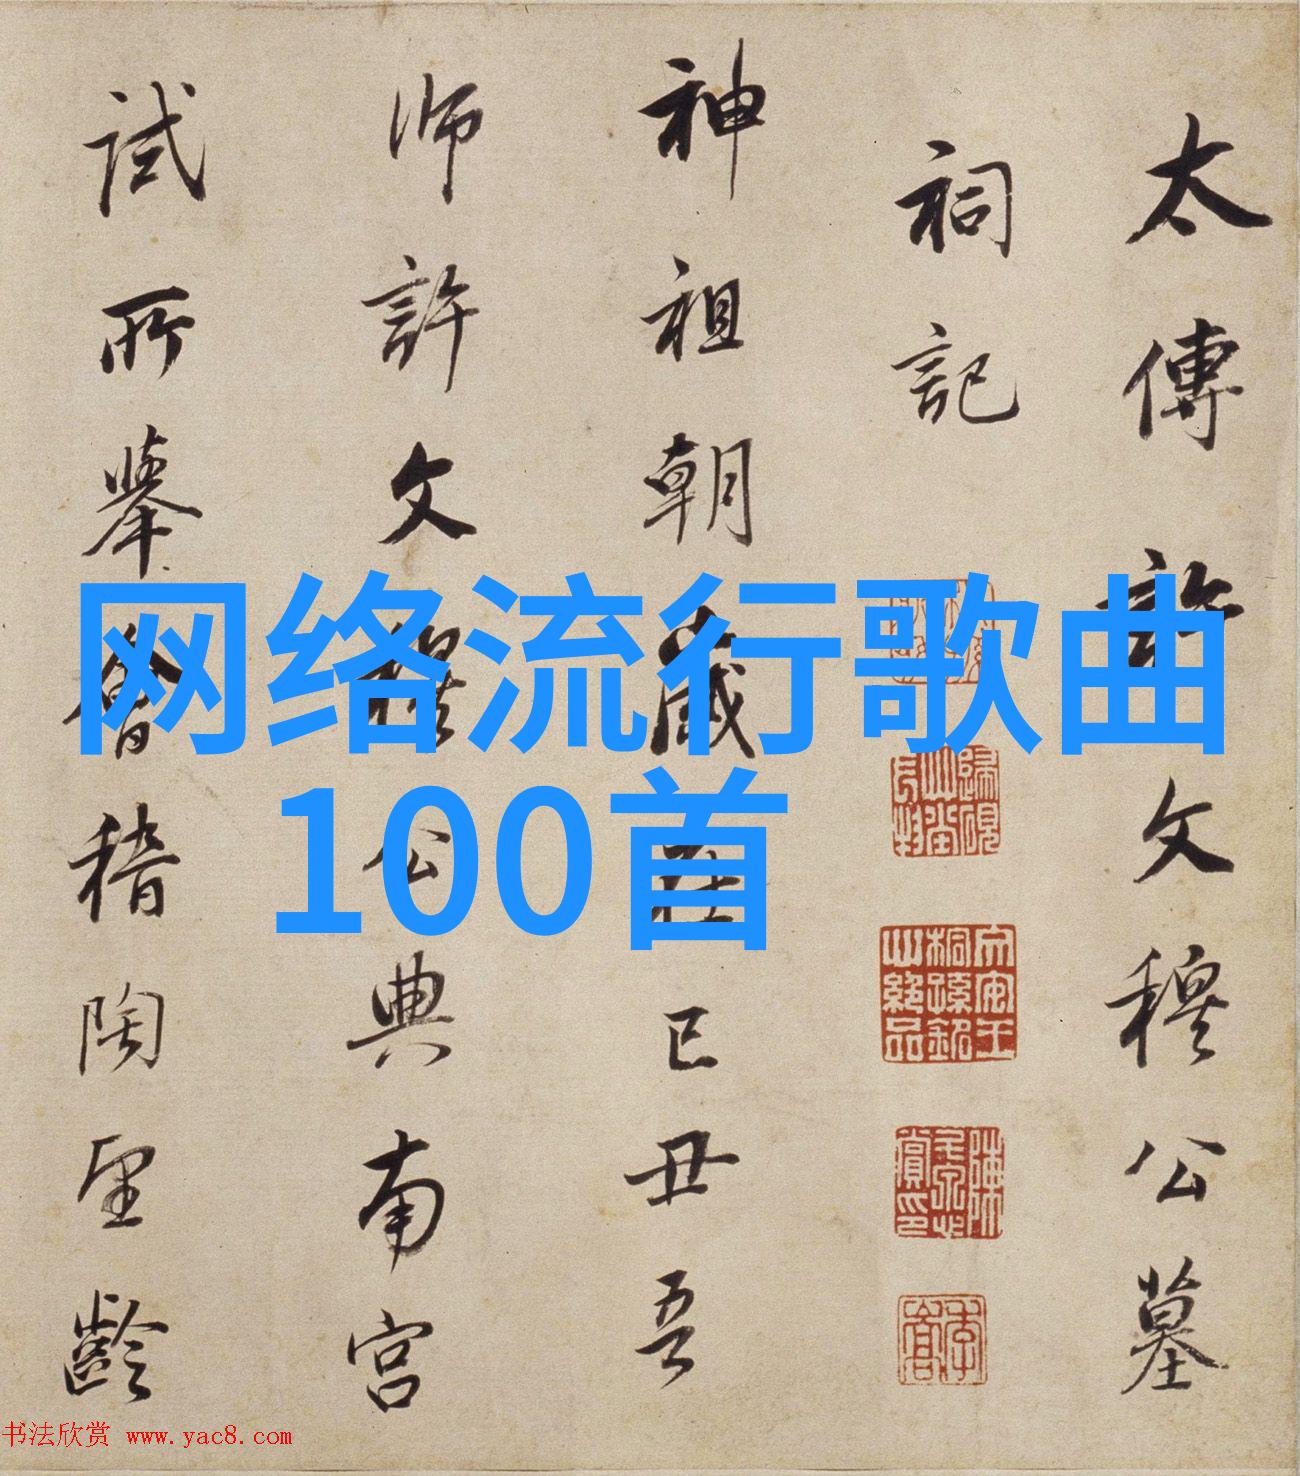 网络流行歌曲
100首
太傳許文穆公墓
祠記
神祖朝歲在己丑吾
師許文穆公典南宮
試所舉會稽陶望齡
书法欣赏 www.yac8.com